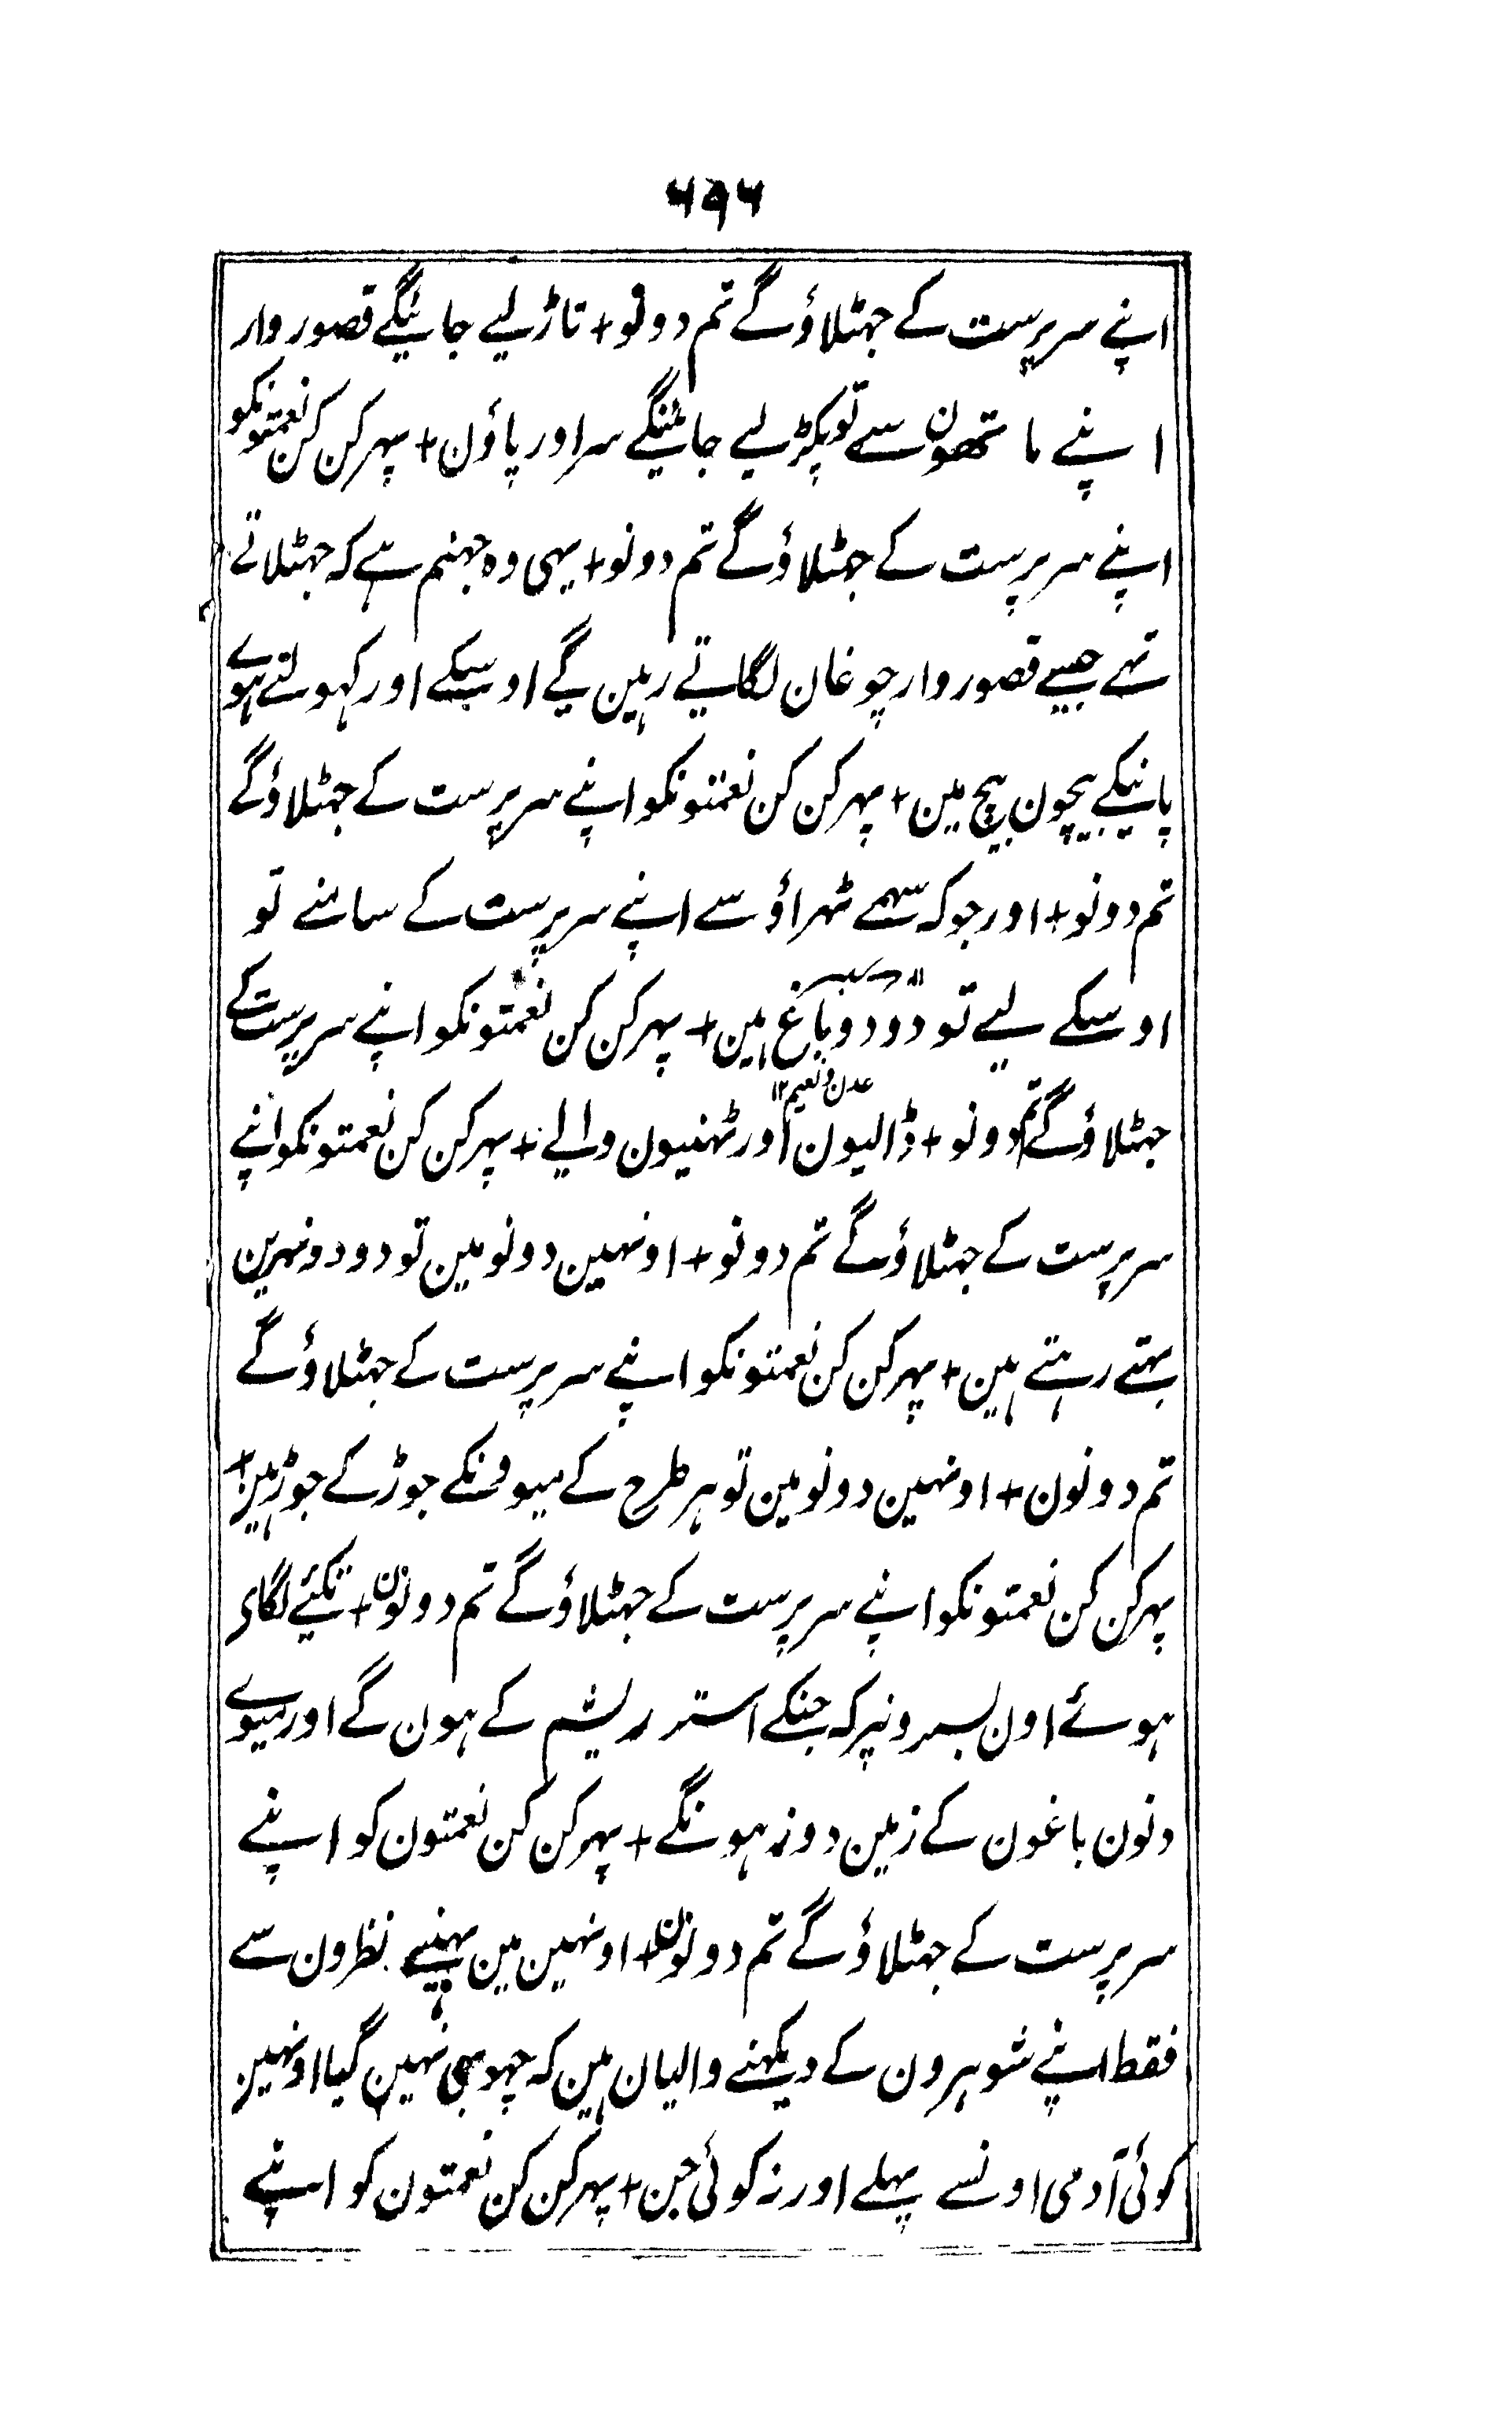 ۶۹۶
اپنے سرپرست کے جہٹلاؤگے تم دونو + تاڑ لیے جائینگے قصور وار
اپنے ماتھون سے تو پکڑ لیے جائینگے سر اور پاؤن + پہر کن کن نعمتونکو
اپنے سرپرست کے جہٹلاؤگے تم دونو + یہی وہ جہنم ہے کہ جہٹلاتے
تہے جسے قصور وار چوغان لگاتے رہین گے اوسیکے اور کہولتے ہوے
پانیکے بیچون بیچ مین + پہر کن کن نعمتونکو اپنے سرپرست کے جہٹلاؤگے
تم دونو + اور جو کہ سہمے ٹہراؤ سے اپنے سرپرست کے سامنے تو
اوسکے لیے تو دو دو باغ ہین + پہر کن کن نعمتونکو اپنے سرپرست کے
عدن و نعیم ۱۲
جہٹلاؤگے تم دونو + ڈالیون اور ٹہنیون والے + پہر کن کن نعمتونکو اپنے
سرپرست کے جہٹلاؤگے تم دونو + اونہین دونو مین تو دو دو نہرین
بہتے رہتے ہین + پہر کن کن نعمتونکو اپنے سرپرست کے جہٹلاؤگے
تم دونون + اونہین دونو مین تو ہر طرح کے میوونکے جوڑ کے جوڑ ہین +
پہر کن کن نعمتونکو اپنے سرپرست کے جہٹلاؤگے تم دونون + تکئے لگای
ہوئے اون بسترونپر کہ جنکے استر ریشم کے ہون گے اور میوے
دنون باغون کے زمین دوز ہونگے + پہر کن کن نعمتون کو اپنے
سرپرست کے جہٹلاؤگے تم دونون + اونہین مین نظرون سے
فقط اپنے شوہرون کے دیکہنے والیان ہین کہ چہو بہی نہین گیا اونہین
کوئی آدمی اونسے پہلے اور نہ کوئی جن + پہر کن کن نعمتون کو اپنے